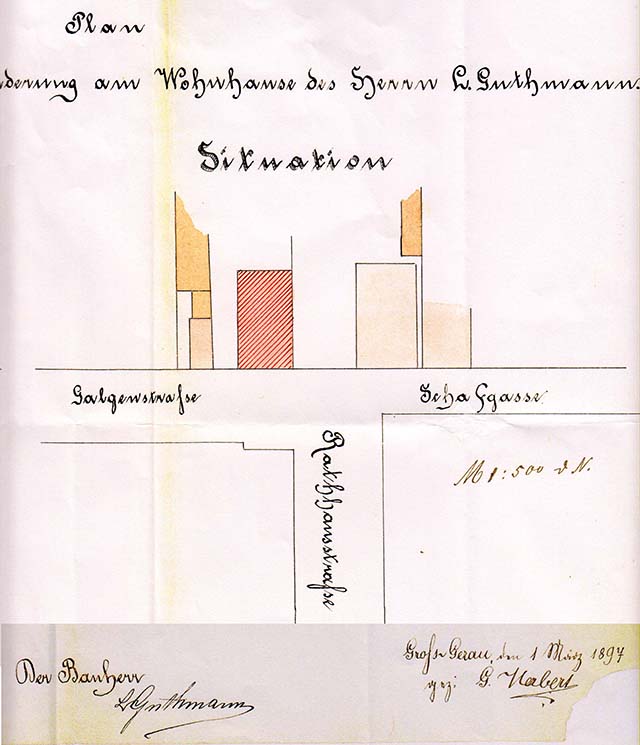 Plan
derung am Wohnhause des Herrn L. Guthmann
Situation
Galgenstraße
Schafgasse
Rathhausstraße
M 1:500 d N.
Groß-Gerau, den 1 März 1897
gez: G.
Der Bauherr
L Guthmann